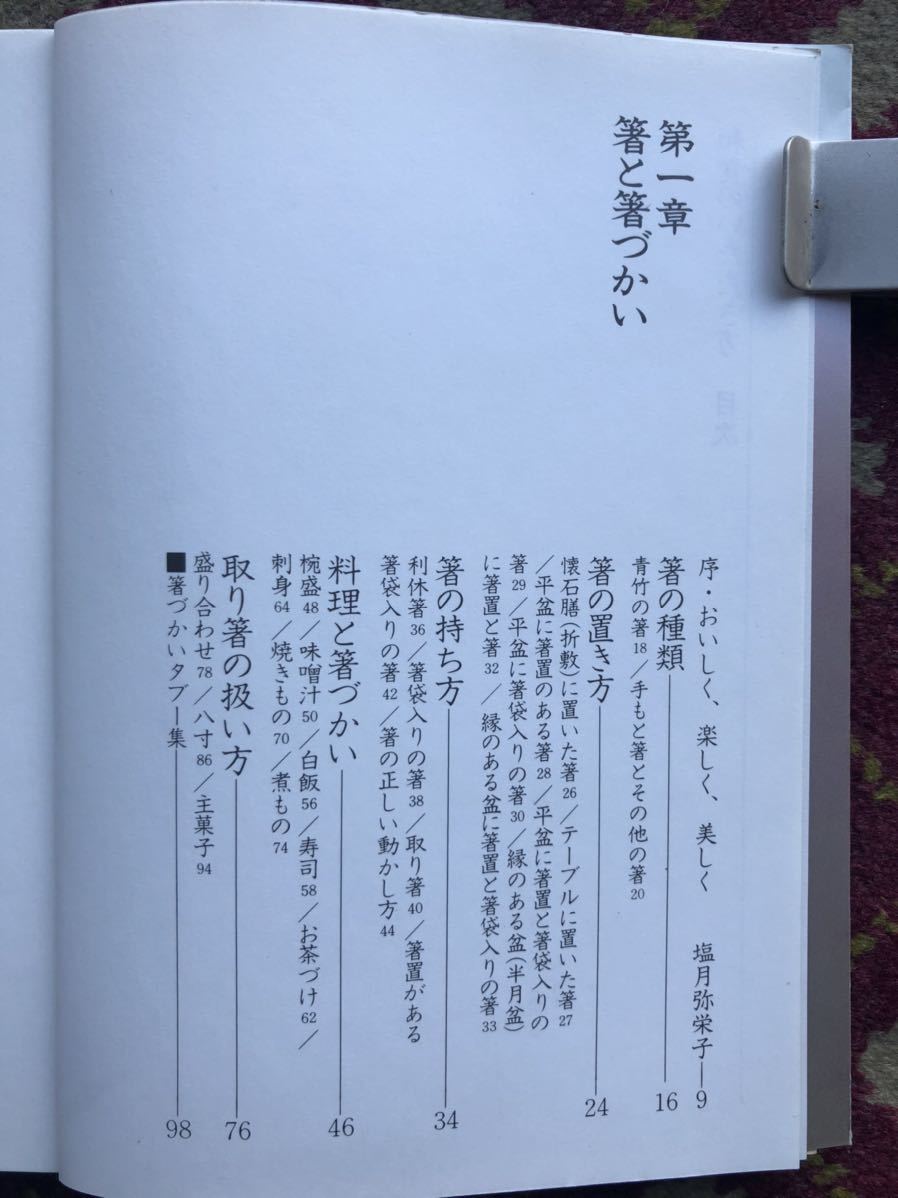 第一章
箸と箸づかい
序・おいしく、楽しく、美しく　塩月弥栄子―9
箸の種類―16
青竹の箸18／手もと箸とその他の箸20
箸の置き方―24
懐石膳(折敷)に置いた箸26／テーブルに置いた箸27
／平盆に箸置のある箸28／平盆に箸置と箸袋入りの
箸29／平盆に箸袋入りの箸30／縁のある盆(半月盆)
に箸置と箸32／縁のある盆に箸置と箸袋入りの箸33
箸の持ち方―34
利休箸36／箸袋入りの箸38／取り箸40／箸置がある
箸袋入りの箸42／箸の正しい動かし方44
料理と箸づかい―46
椀盛48／味噌汁50／白飯56／寿司58／お茶づけ62／
刺身64／焼きもの70／煮もの74
取り箸の扱い方―76
盛り合わせ78／八寸86／主菓子94
■箸づかいタブー集―98